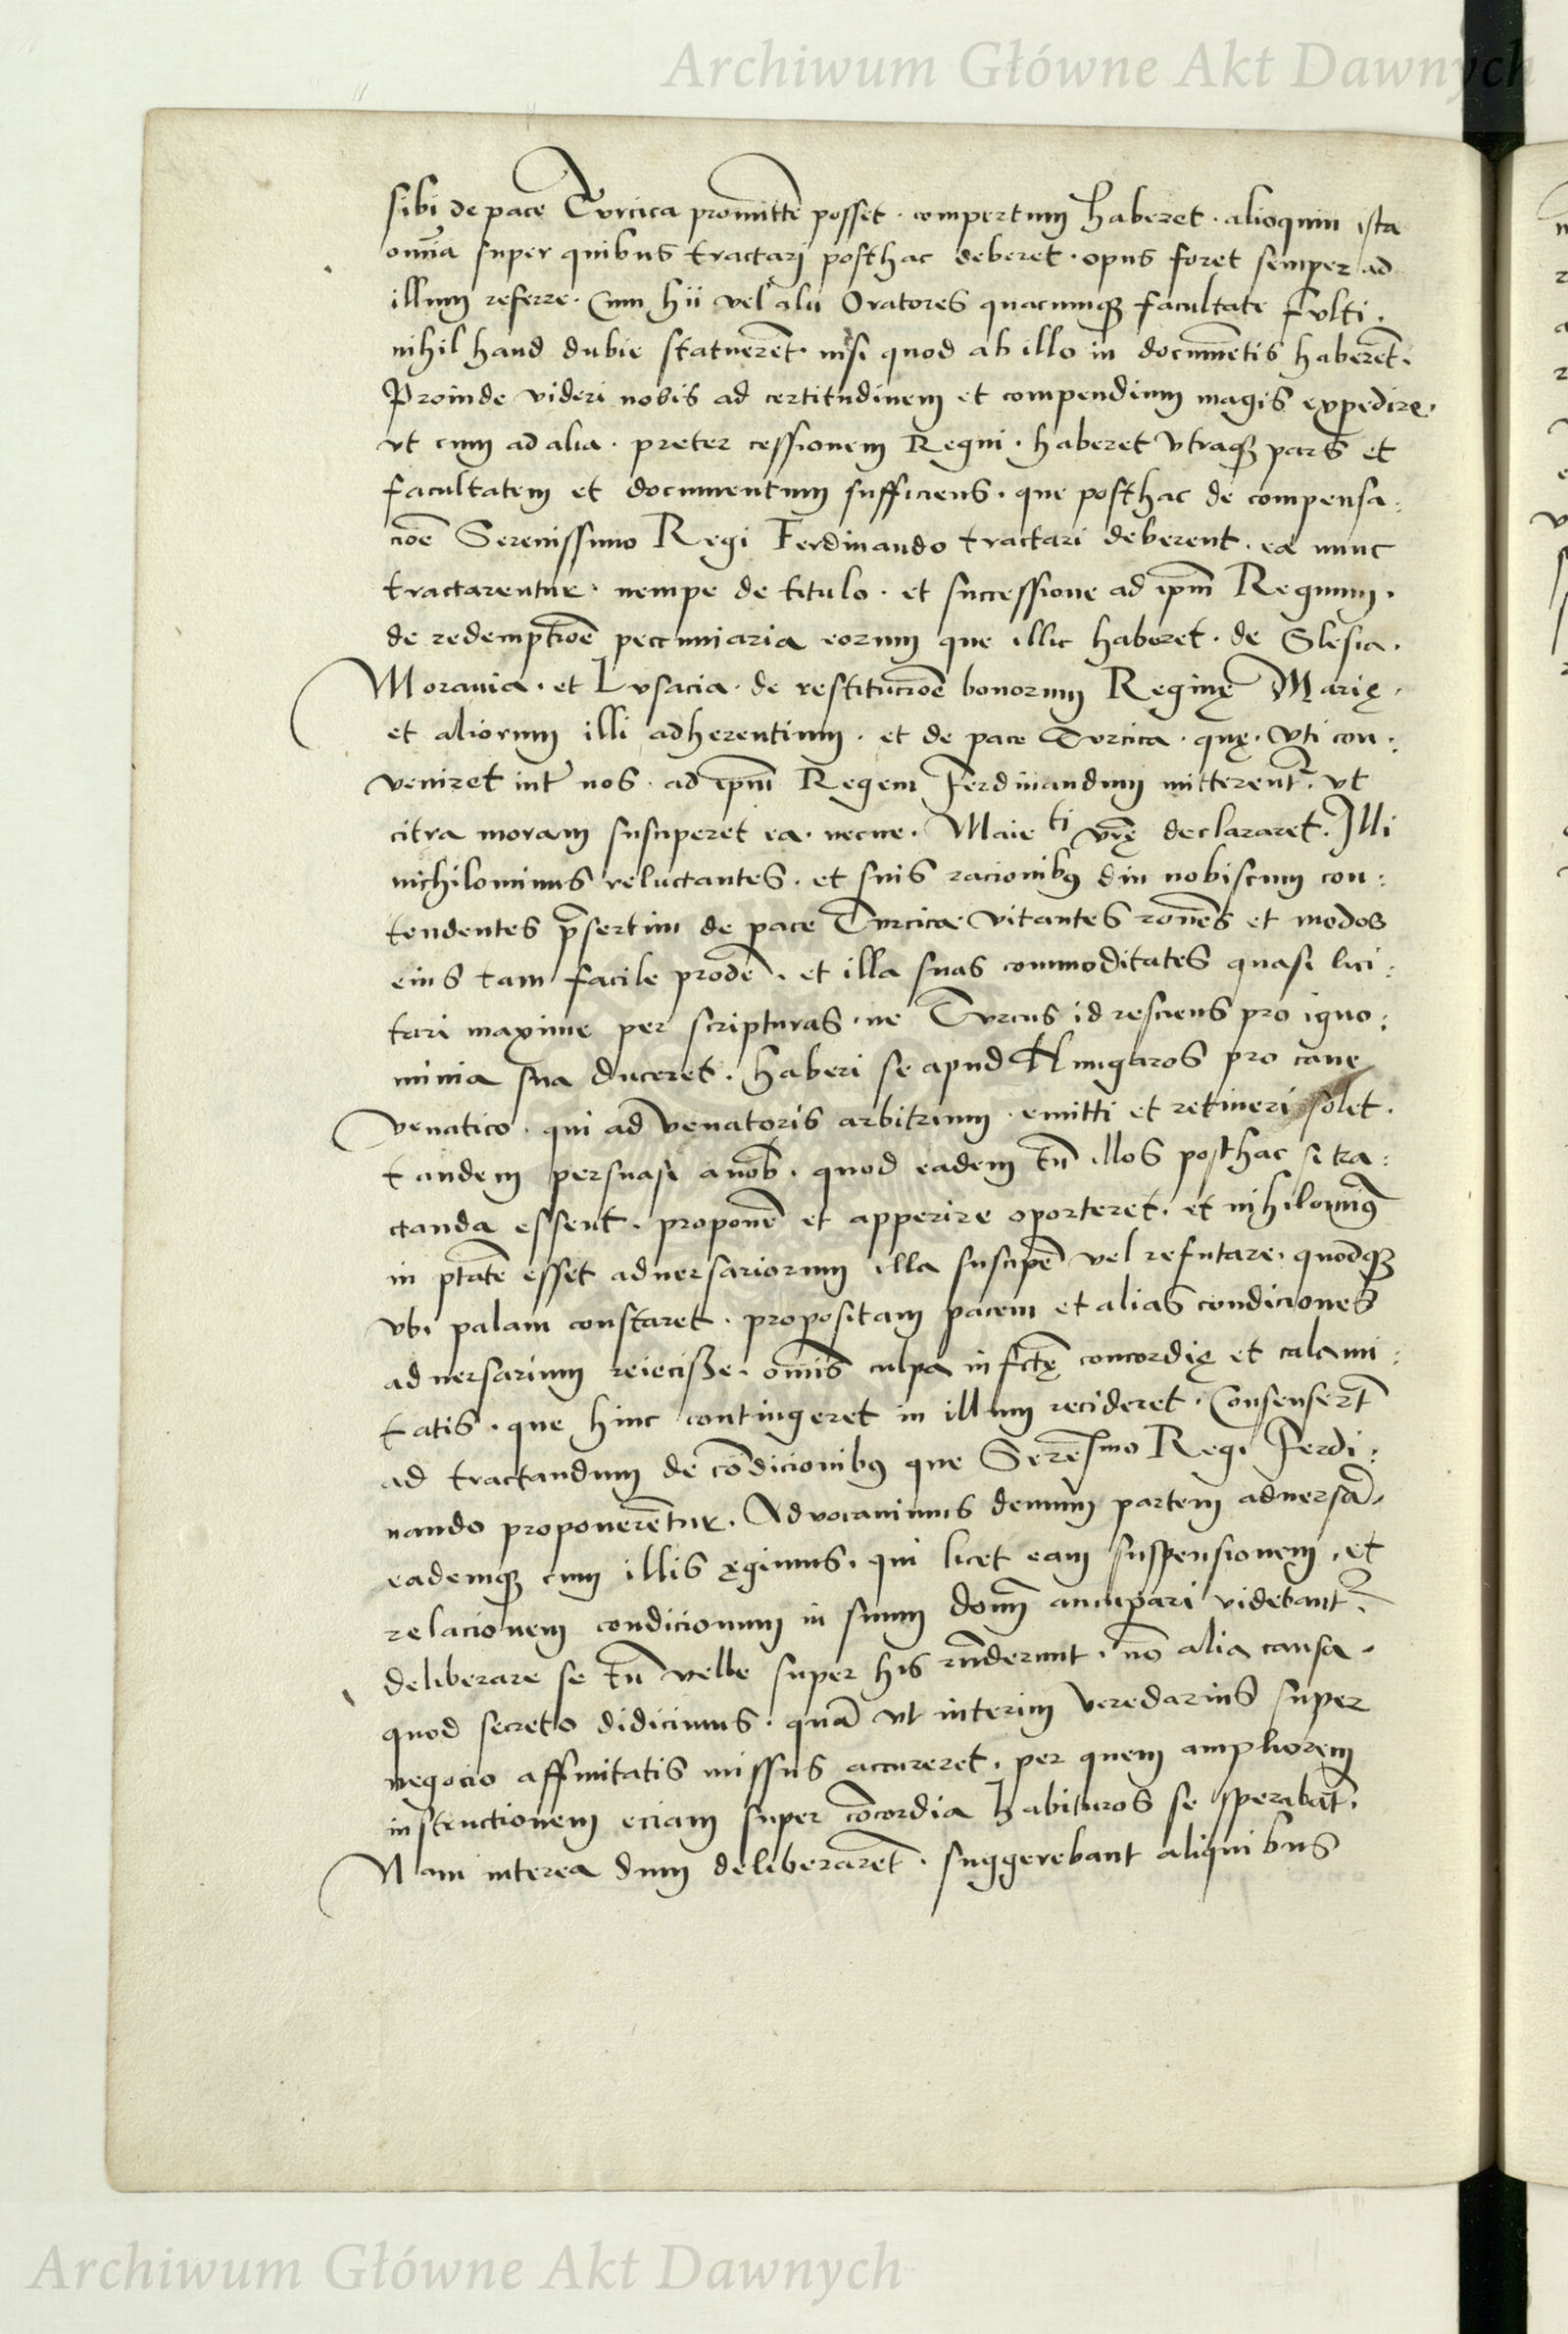 Archiwum Główne Akt Dawnych
sibi de pace Turcica promittē posset · compertum haberet · alioquin ista
omīa super quibus tractari posthac deberet · opus foret semper ad
illum referre · Cum hii vel alii Oratores quacumqꝫ facultate fulti ·
nihil haud dubie statuerēt · nisi quod ab illo in documētis haberēt ·
Proinde videri nobis ad certitudinem et compendium magis expedire ·
vt cum ad alia · preter cessionem Regni · haberet vtraqꝫ pars et
facultatem et documentum sufficiens · que posthac de compensa:
cioē Serenissimo Regi Ferdinando tractari deberent · ea nunc
tractarentur · nempe de titulo · et successione ad ip̄m Regnum ·
de redemptioē peccuniaria eorum que illic haberet · de Slesia ·
Morauia · et Lusacia · de restitucioē bonorum Reginę Marię ·
et aliorum illi adherentium · et de pace Turcica · quę · vti con:
veniret int̄ nos · ad ip̄m Regem Ferdinandum mitterent̄ · vt
citra moram susciperet ea · necne · Maieti vrę̄ declararet · Illi
nichilominus reluctantes · et suis racionibꝰ diu nobiscum con:
tendentes p̄sertim de pace Turcica vitantes rōnes et modos
eius tam facile prodē · et illa suas commoditates quasi lici:
tari maxime per scripturas · ne Turcus id resciens pro igno:
minia sua duceret · haberi se apud Hungaros pro cane
venatico · qui ad venatoris arbitrium · emitti et retineri solet ·
tandem persuasi a nob̄ · quod eadem tn̄ illos posthac si tra:
ctanda essent · proponē et apperire oporteret · et nihilominꝰ
in ptātē esset aduersariorum illa suscipē vel refutare · quodqꝫ
vbi palam constaret · propositam pacem et alias condiciones
aduersarium reieciße · omīs culpa infctę̄ concordię et calami:
tatis · que hinc contingeret in illum recideret · Consensert̄
ad tractandum de cōdicionibꝰ que Serēsmo Regi Ferdi:
nando proponerētur · Aduocauimus demum partem aduersā ·
eademqꝫ cum illis ęgimus · qui licet eam suspensionem · et
relacionem condicionum in suum dom̄ aucupari videbant̄ ·
deliberare se tn̄ velle super his rn̄derunt · nō alia causa ·
quod secreto didicimus · quā vt interim veredarius super
negocio affinitatis missus accureret · per quem ampliorem
instructionem eciam super cōcordia habituros se sperabāt ·
Nam interea dum deliberarēt · suggerebant aliquibus
Archiwum Główne Akt Dawnych